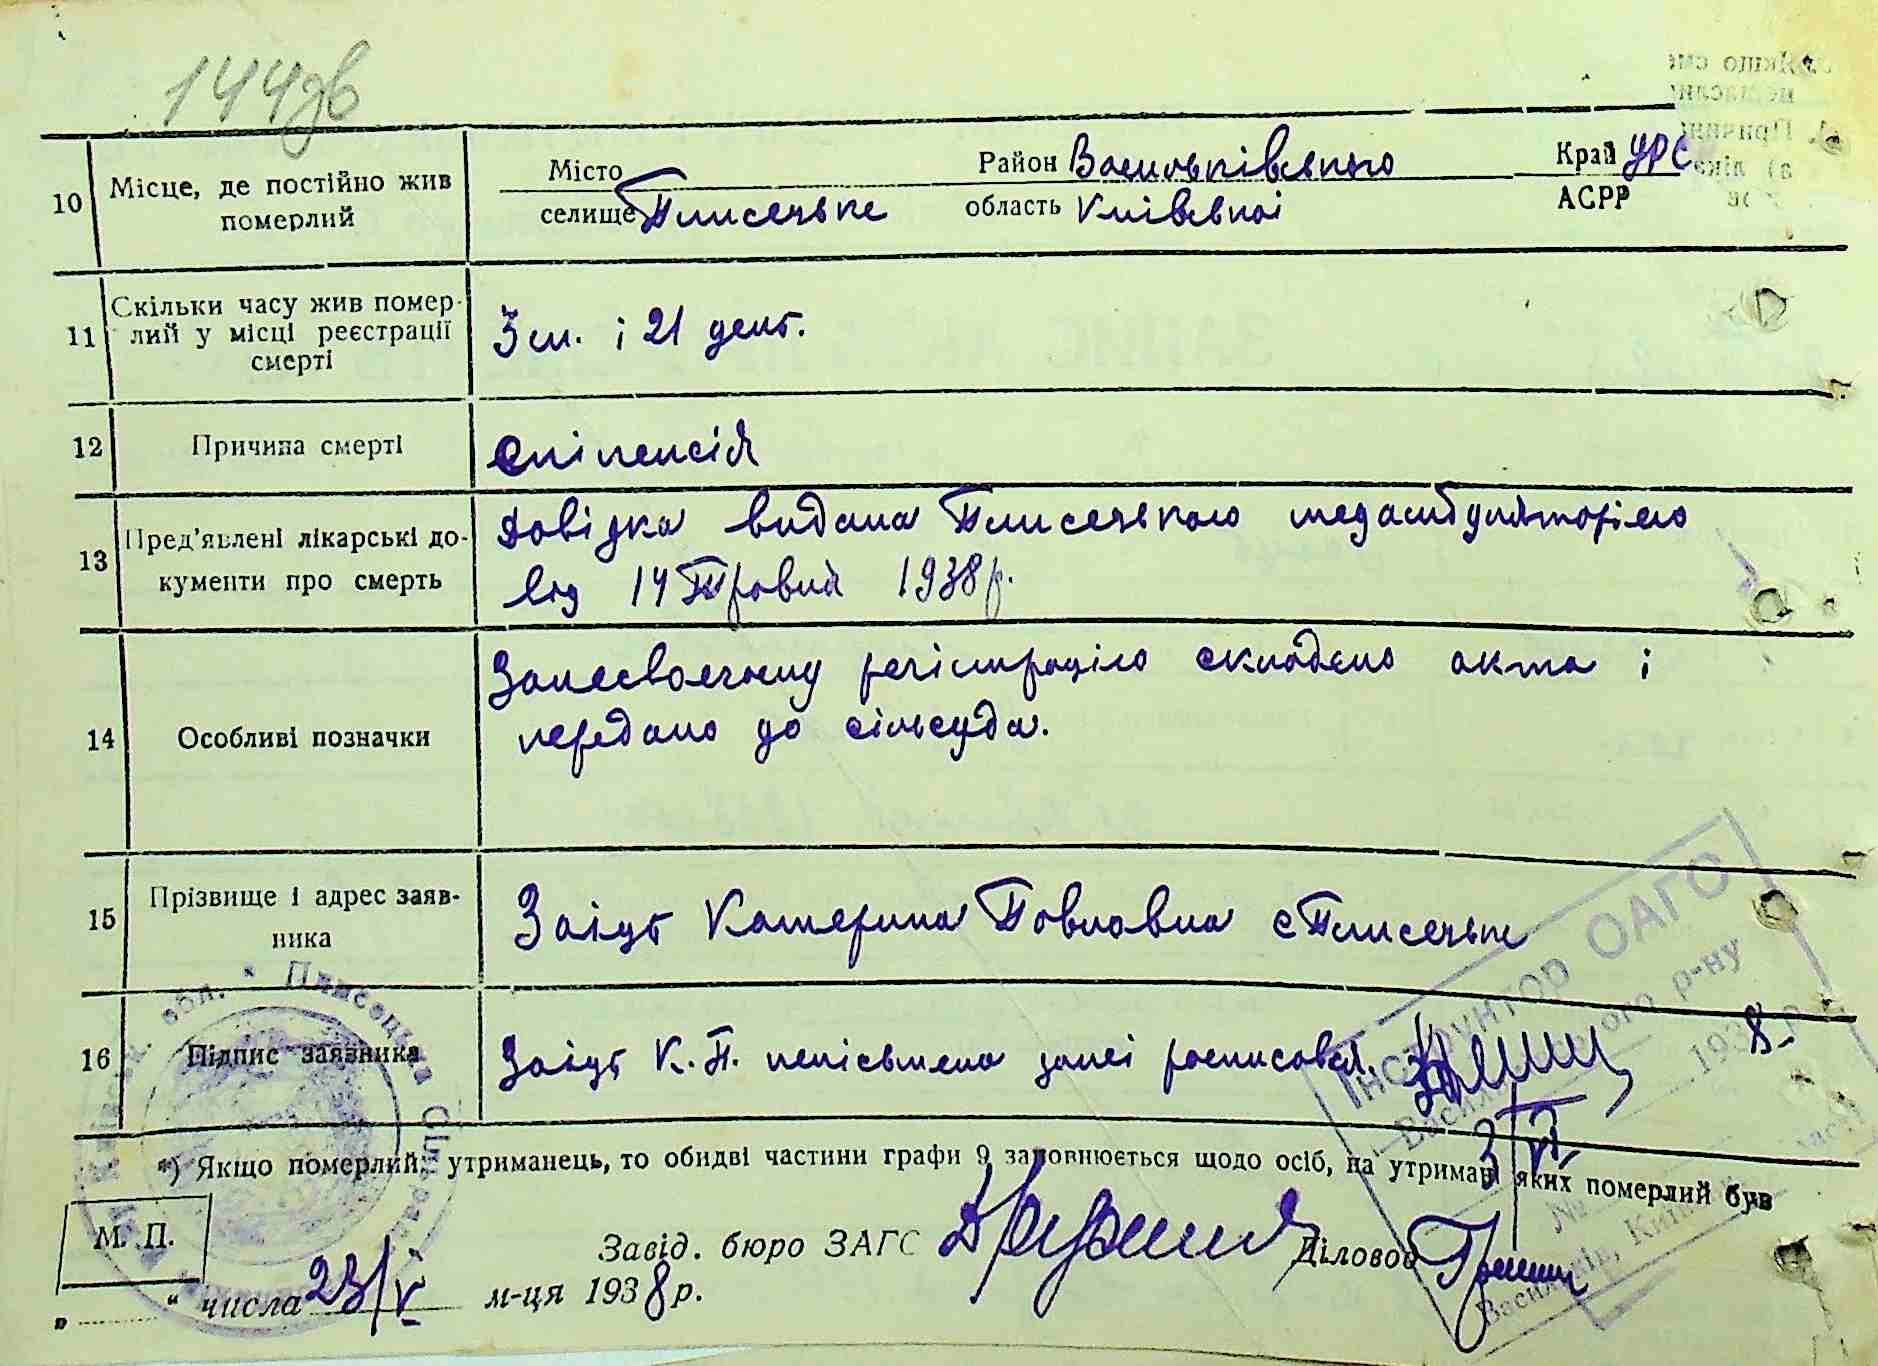 144зв
10 Місце, де постійно жив померлий
Місто Район Васильківського Край УРСР
селище Плисецьке область Київської АСРР
11 Скільки часу жив помер-
лий у місці реєстрації
смерті
3 м. і 21 день.
12 Причина смерті
Єпілепсія
13 Пред'явлені лікарські до-
кументи про смерть
Довідка видана Плисецькою медамбуляторією
від 14 Травня 1938 р.
14 Особливі позначки
Занесвоечасну регістрацію складено акта і
передано до сільсуда.
15 Прізвище і адрес заяв-
ника
Заіць Катерина Павловна с Плисецьке
16 Підпис заявника
Заіць К. П. непісьмена занеі росписався.
*) Якщо померлий утриманець, то обидві частини графи 9 заповнюється щодо осіб, на утриман яких померлий був
М. П.
Завід. бюро ЗАГС
Діловод
„ “ числа 23/V м-ця 1938 р.
обл. * Плисецька
Інструктор ОАГС
Василь ого р-ну
1938 р.
3/VI
№
Васильків, Київ